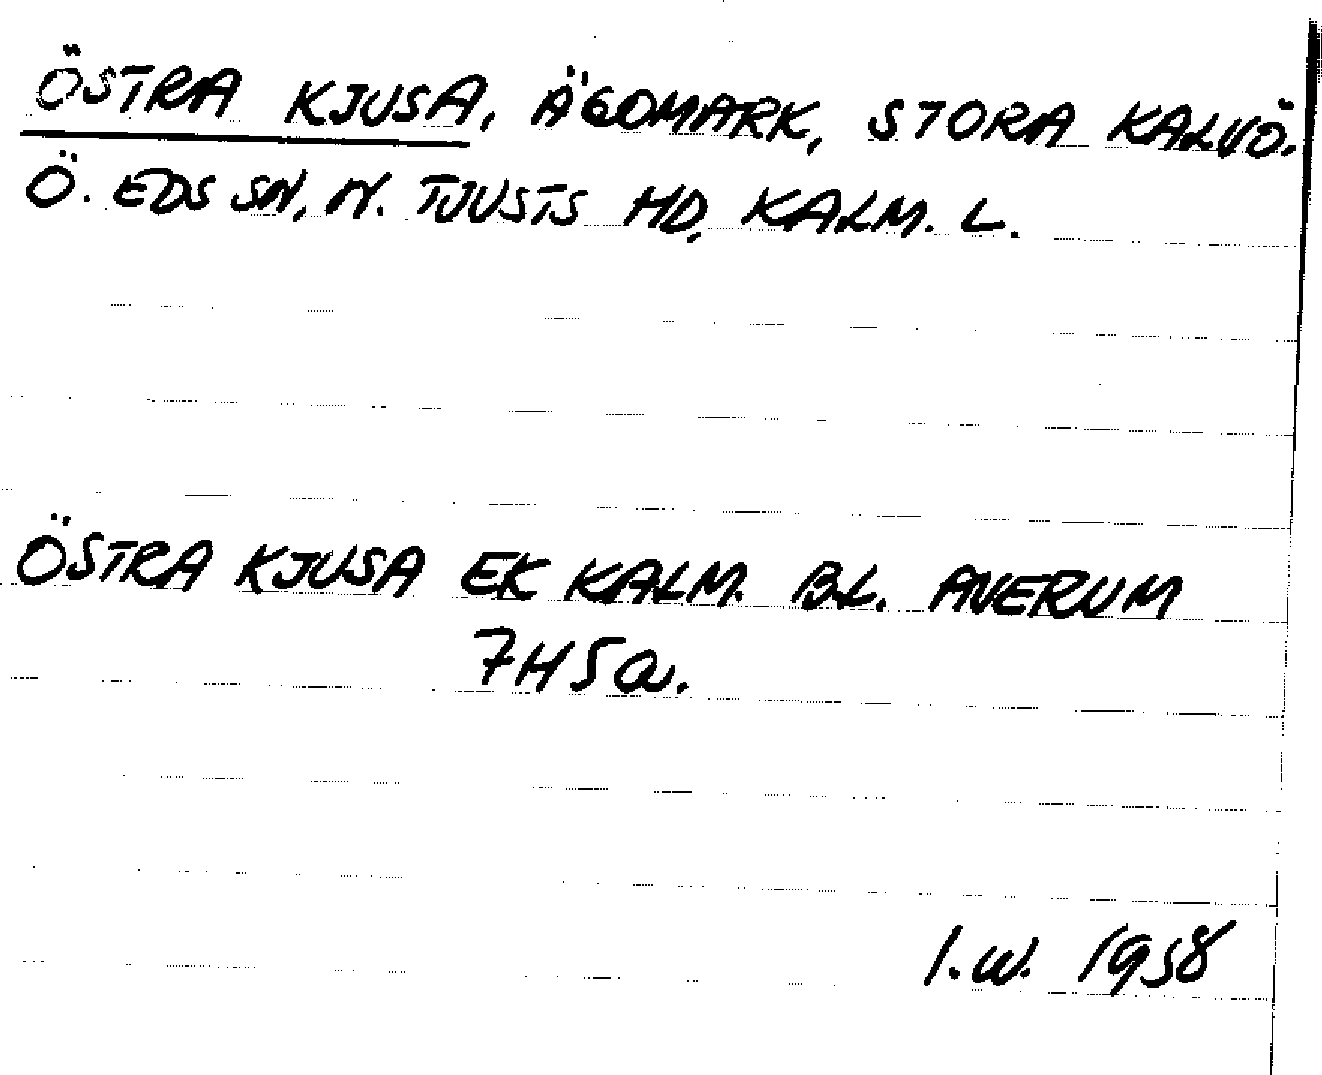 ÖSTRA KJUSA, ÄGOMARK, STORA KALVÖ.
Ö. EDS SN, N. TJUSTS HD, KALM. L.
ÖSTRA KJUSA EK KALM. BL. AVERUM
7H5a.
I.W. 1958